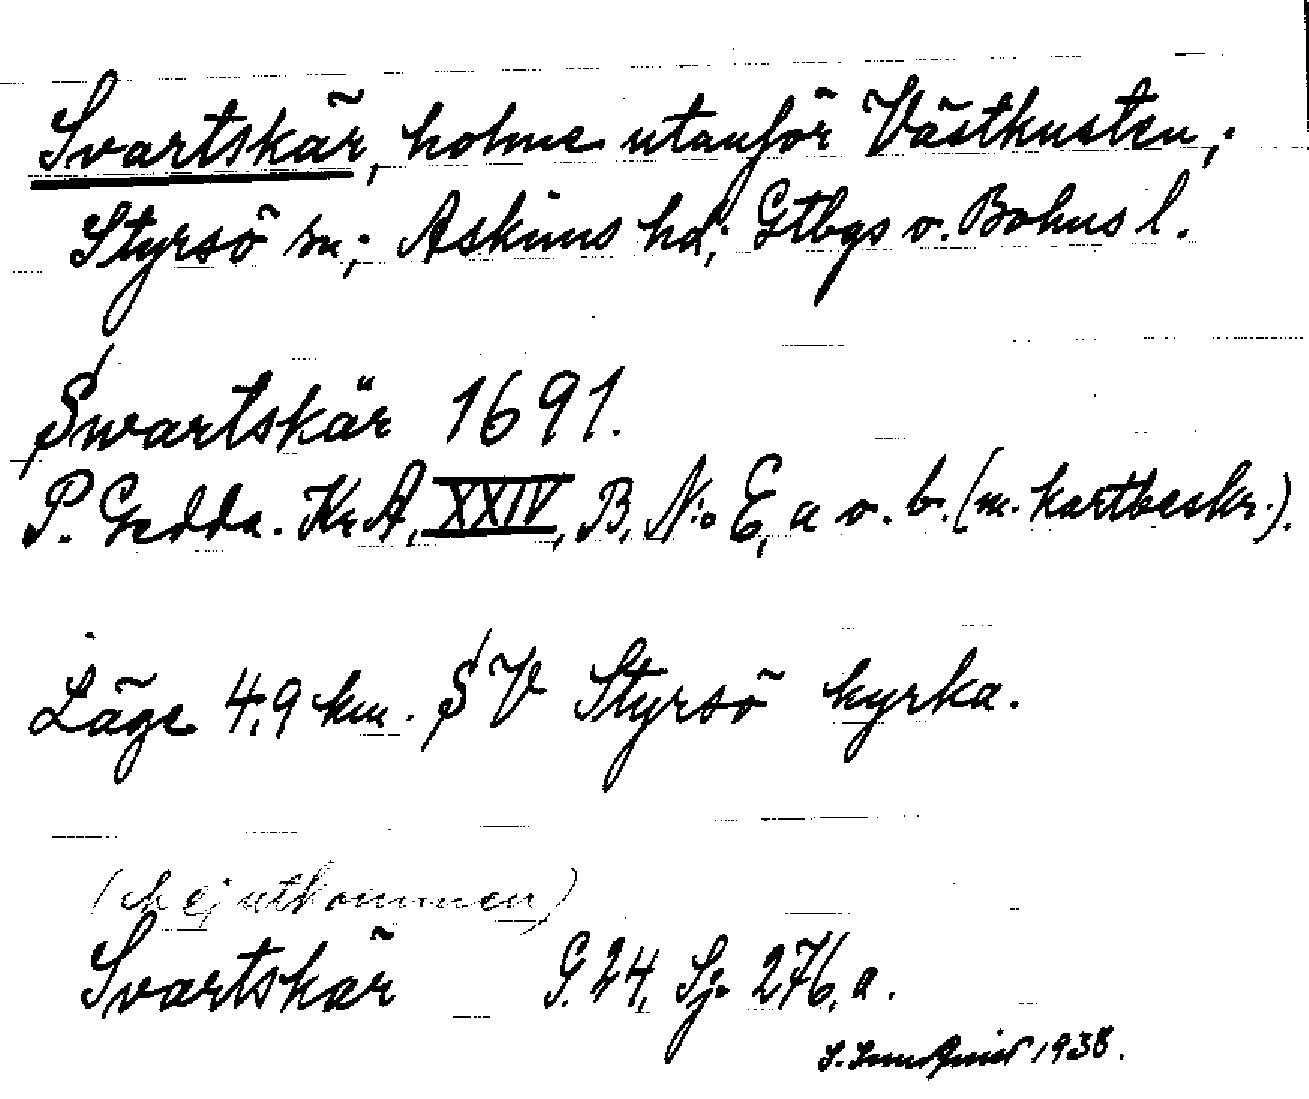 Svartskär, holme utanför Västkusten;
Styrsö sn; Askims hd; Gtbgs o. Bohus l.
Swartskär 1691.
P. Gedda. Kr. A. XXIV, B. N:o E, a o. b. (m. kartbeskr.).
Läge 4,9 km. SV Styrsö kyrka.
(ej utkommen)
Svartskär G. 24. Sj. 276, a.
1938.